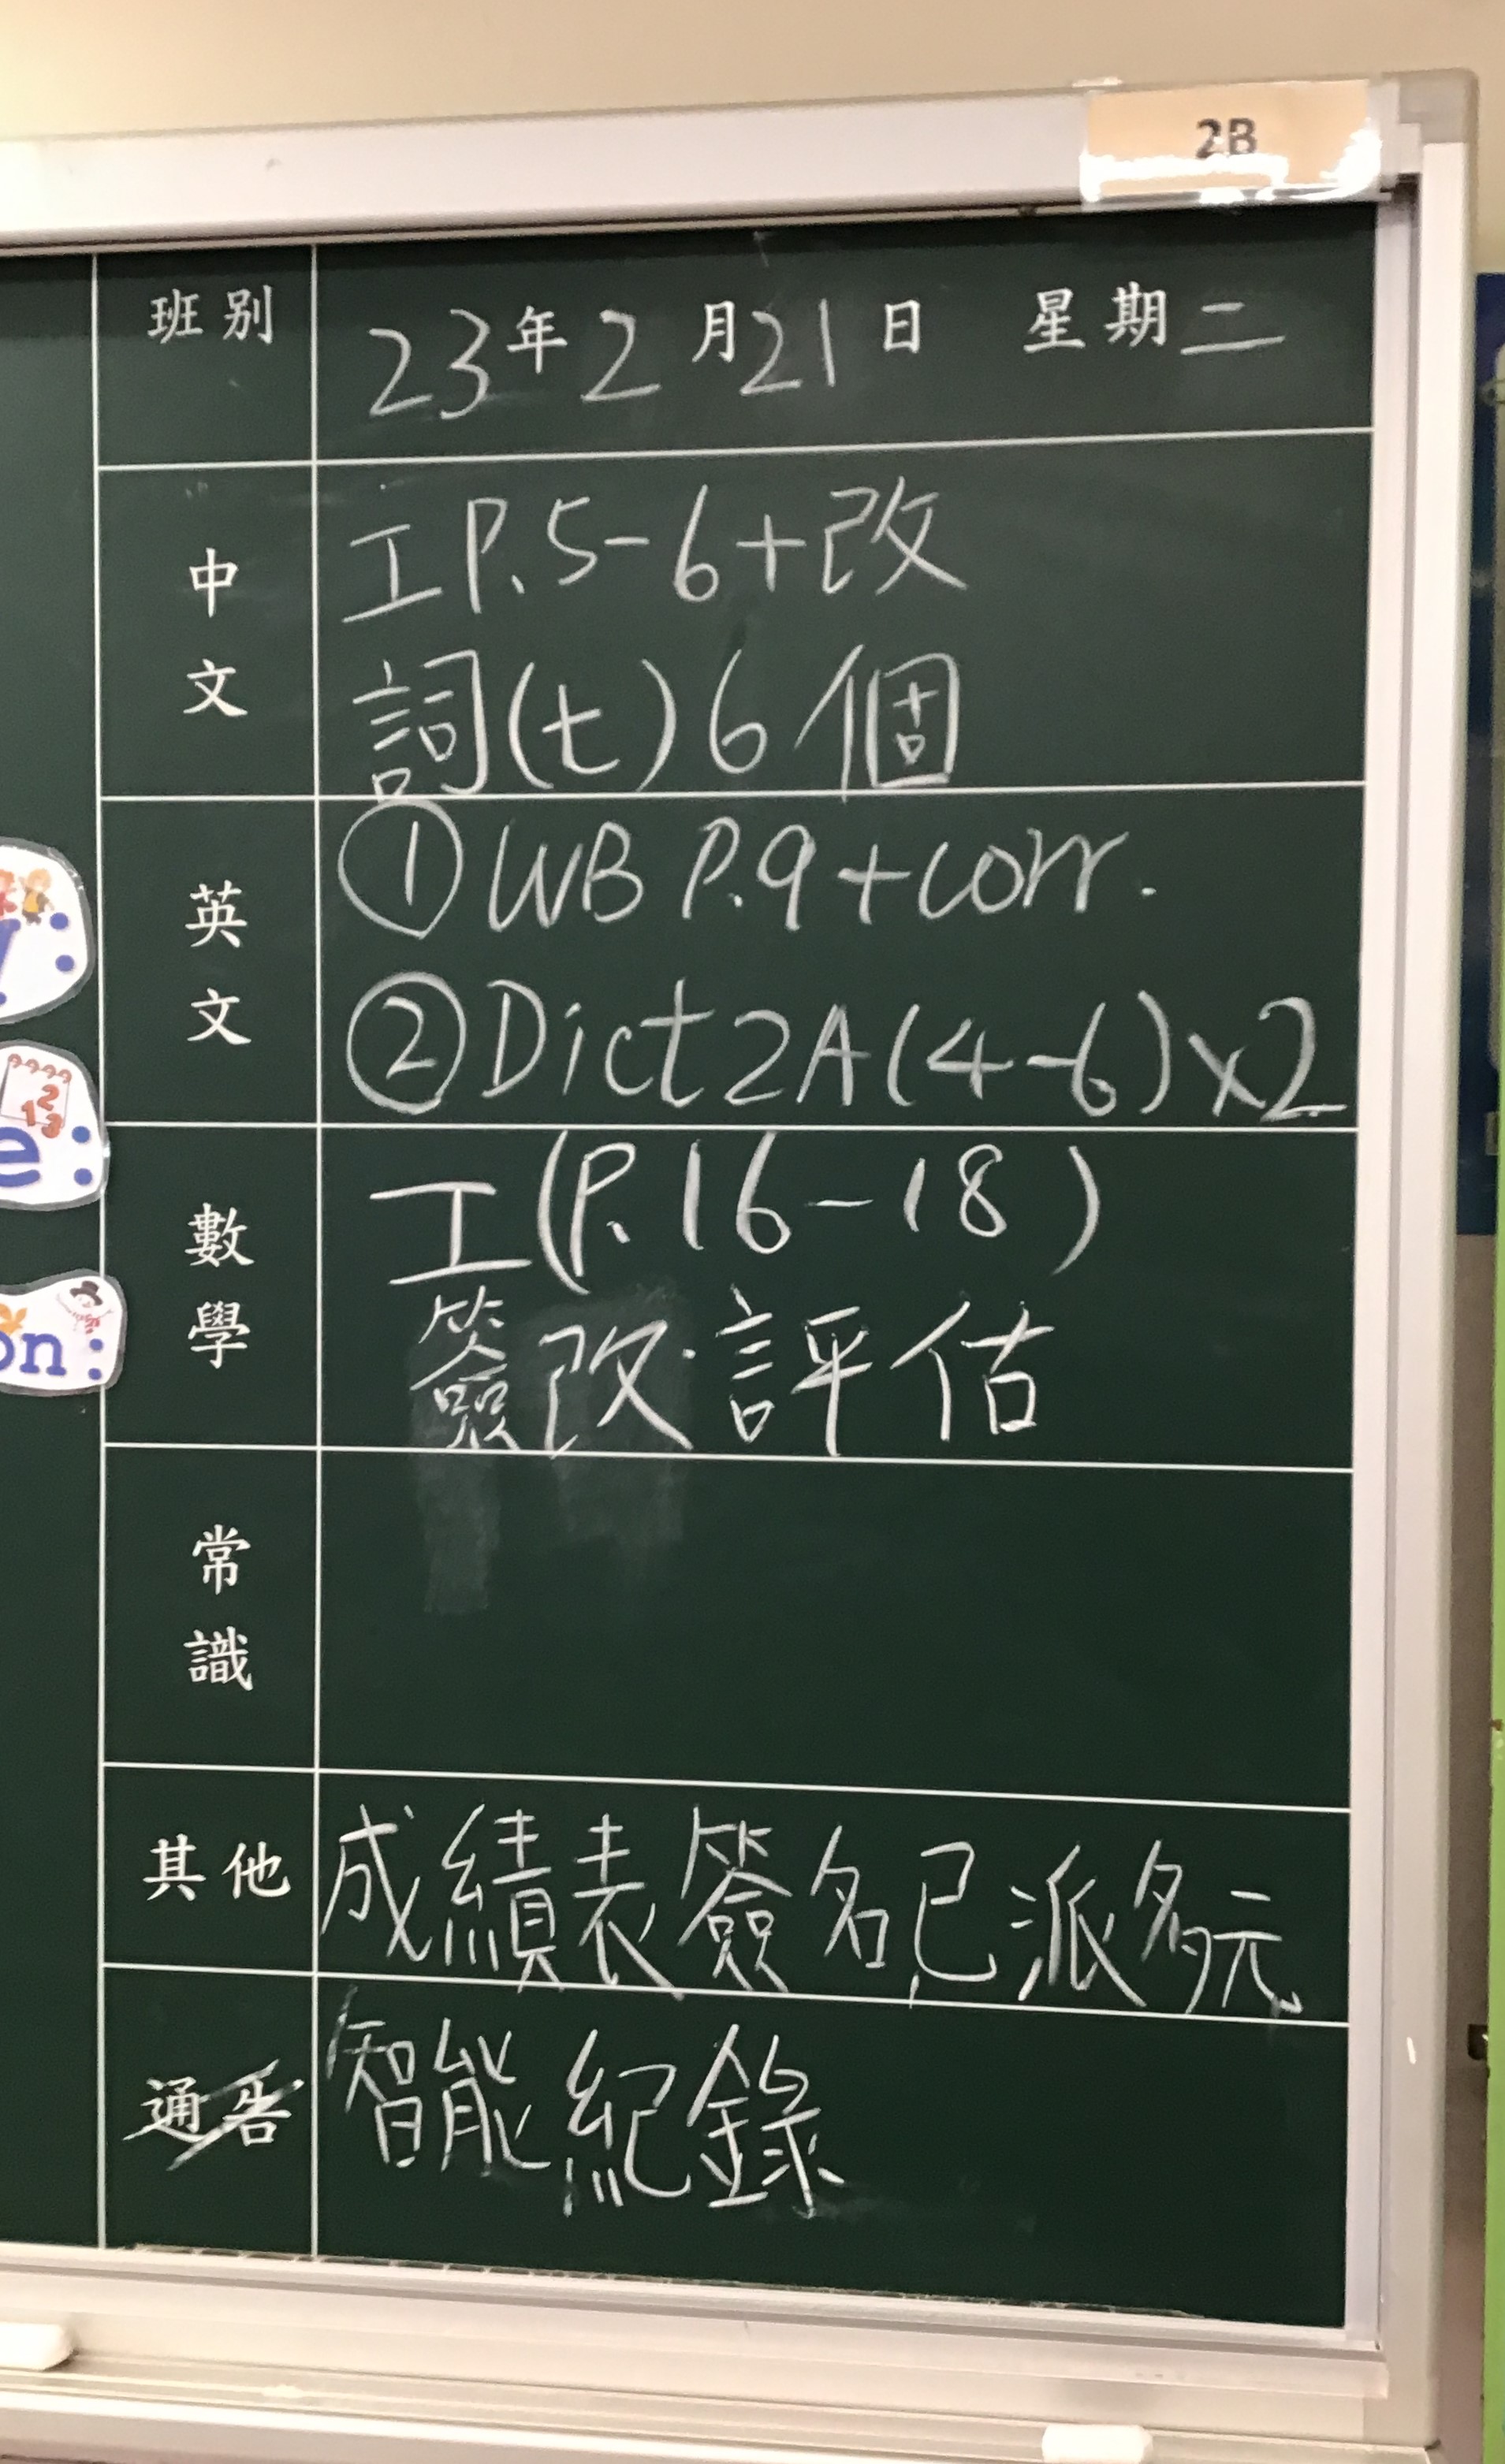 2B
班別 23年2月21日 星期二
中文
工P.5-6+改
詞(七)6個
英文
①WB P.9+corr.
②Dict 2A(4-6)x2
數學
工(P.16-18)
簽改評估
常識
其他
成績表簽名,已派多元
通告
智能紀錄
y:
e:
on:
2
1 3